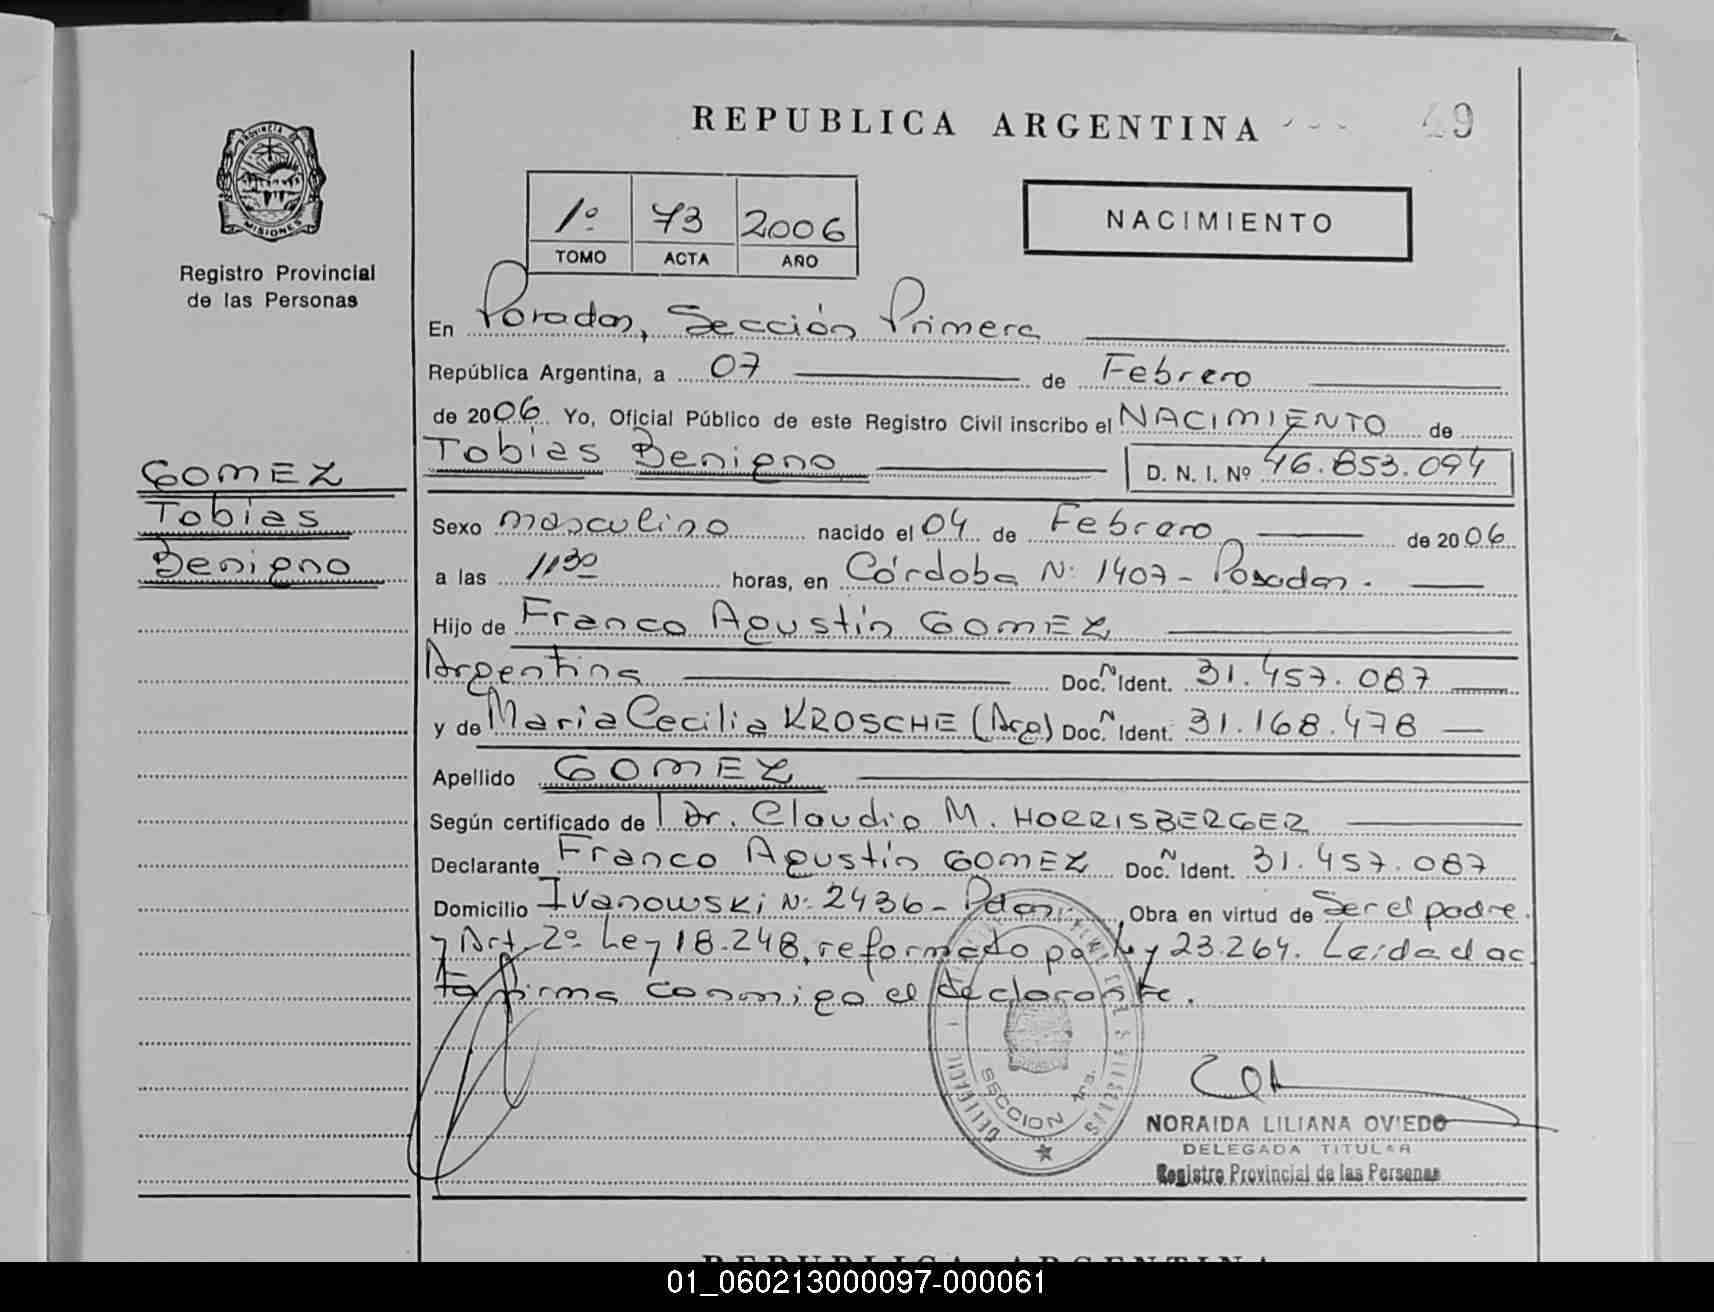 REPUBLICA ARGENTINA
49
PROVINCIA DE MISIONES
Registro Provincial
de las Personas
1º 73 2006
TOMO ACTA AÑO
NACIMIENTO
En Posadas, Sección Primera
República Argentina, a 07 de Febrero
de 2006 Yo, Oficial Público de este Registro Civil inscribo el NACIMIENTO de
Tobias Benigno D. N. I. Nº 46.853.094
GOMEZ
Tobias
Benigno
Sexo masculino nacido el 04 de Febrero de 2006
a las 11 30 horas, en Córdoba Nº 1407 - Posadas.
Hijo de Franco Agustín GOMEZ
Argentina Doc. N Ident. 31.457.087
y de Maria Cecilia KROSCHE (Arg) Doc. N Ident. 31.168.478
Apellido GOMEZ
Según certificado de Dr. Claudio M. HORRISBERGER
Declarante Franco Agustín GOMEZ Doc. N Ident. 31.457.087
Domicilio Ivanowski Nº 2436 - Pdas. Obra en virtud de Ser el padre.
y Art. 2º Ley 18.248, reformado por Ley 23.264. Leída el ac
ta firma conmigo el declarante.
SECCION 1ra.
NORAIDA LILIANA OVIEDO
DELEGADA TITULAR
Registro Provincial de las Personas
REPUBLICA ARGENTINA
01_060213000097-000061